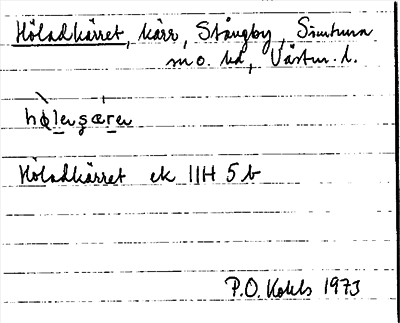 Höladkärret, kärr, Stångby, Simtuna
sn o. hd, Västm. l.
Höladkärret ek 11H 5 b
P.O. Kohls 1973